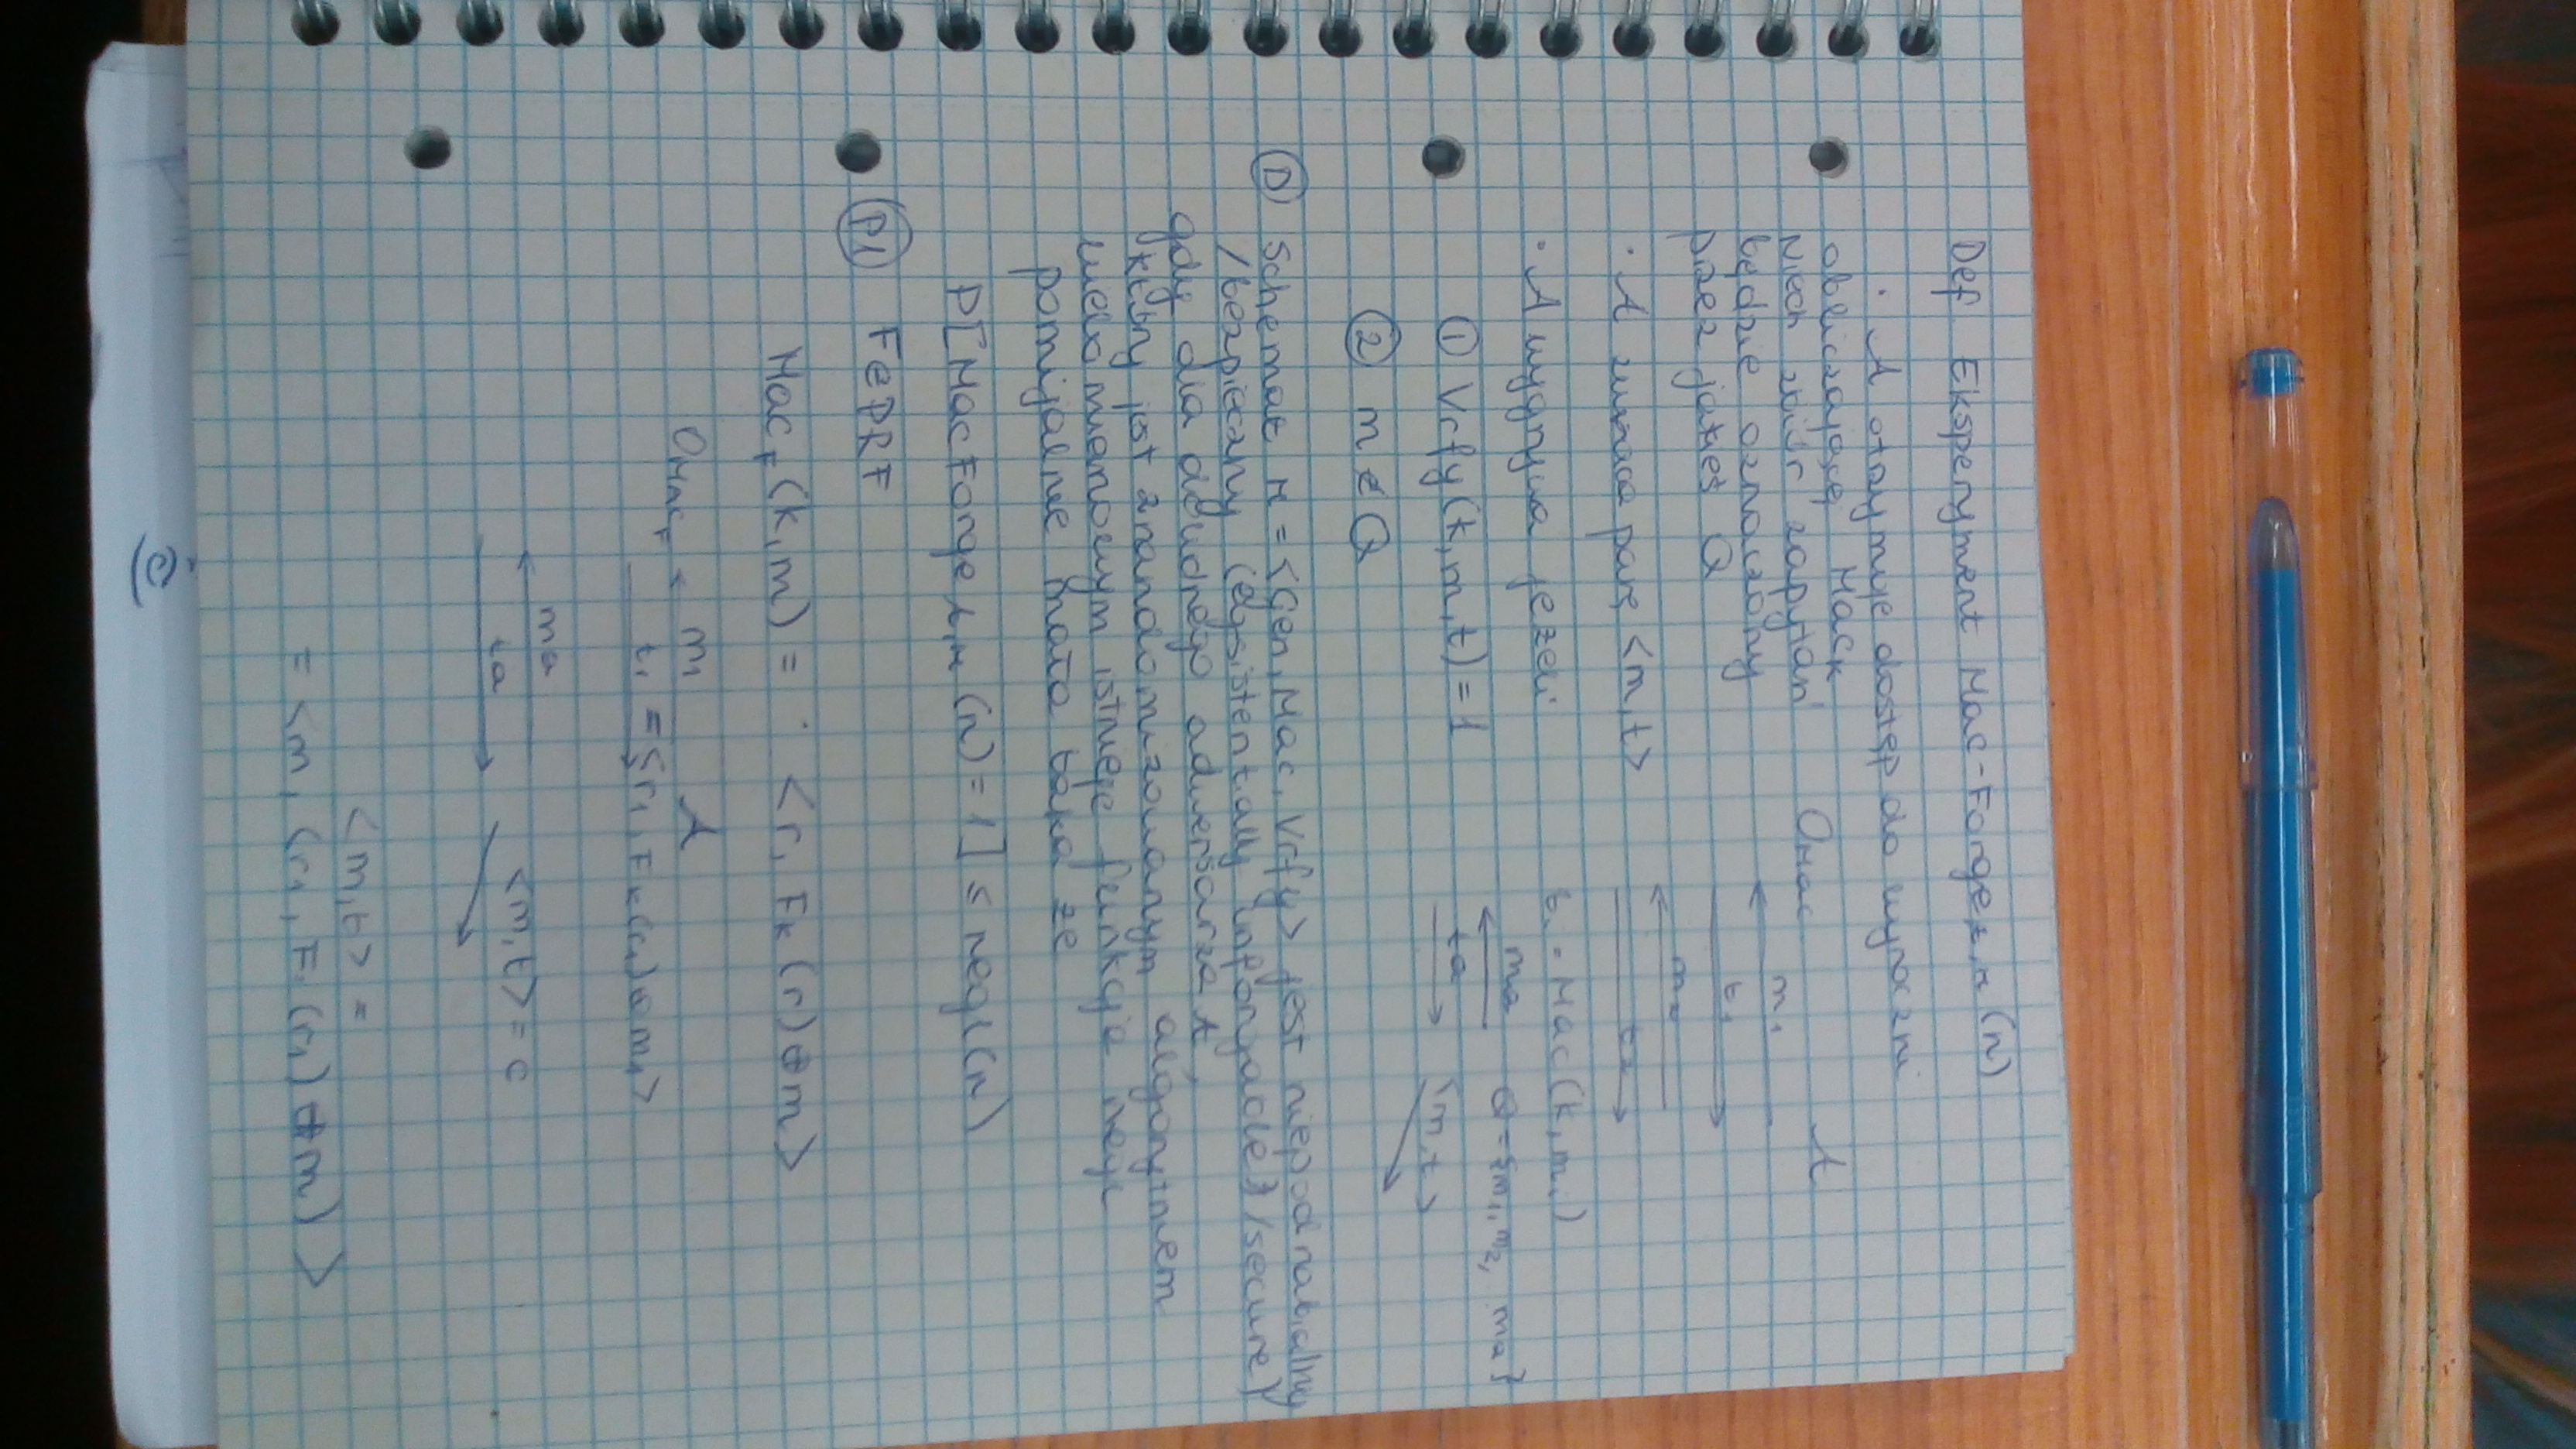 Def Eksperyment Mac-Forge A,π (n)
· A otrzymuje dostęp do wyroczni
obliczającej Mack
Niech zbiór zapytań
będzie oznaczony
przez jakieś Q
OMac A
m1
t1
m2
t2
· A zwraca parę <m,t>
ti = Mac(k,mi)
· A wygrywa jeżeli
mq Q={m1,m2, mq}
tq <m,t>
① Vrfy(k,m,t)=1
② m∉Q
Ⓓ Schemat π=<Gen,Mac,Vrfy> jest niepodrabialny
/bezpieczny (egsistentally unforgable)/secure)
gdy dla dowolnego adwersarza A,
który jest zrandomizowanym algorytmem
wielomianowym istnieje funkcja negl
pomijalnie mała taka że
P[MacForge A,π (n)=1] ≤ negl(n)
(P1) F∈PRF
MacF(k,m) = · <r, Fk(r)⊕m>
OMacF m1 A
t1 = <r1, Fk(r1)⊕m1>
mq
tq <m,t> = c
<m,t> =
= <m, (r1, F1(r1)⊕m)>